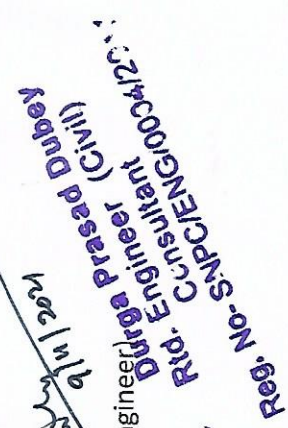 9/11/2024
gineer)
Durga Prasad Dubey
Rtd. Engineer (Civil)
Consultant
Reg. No- S.NPC/ENG/0004/20